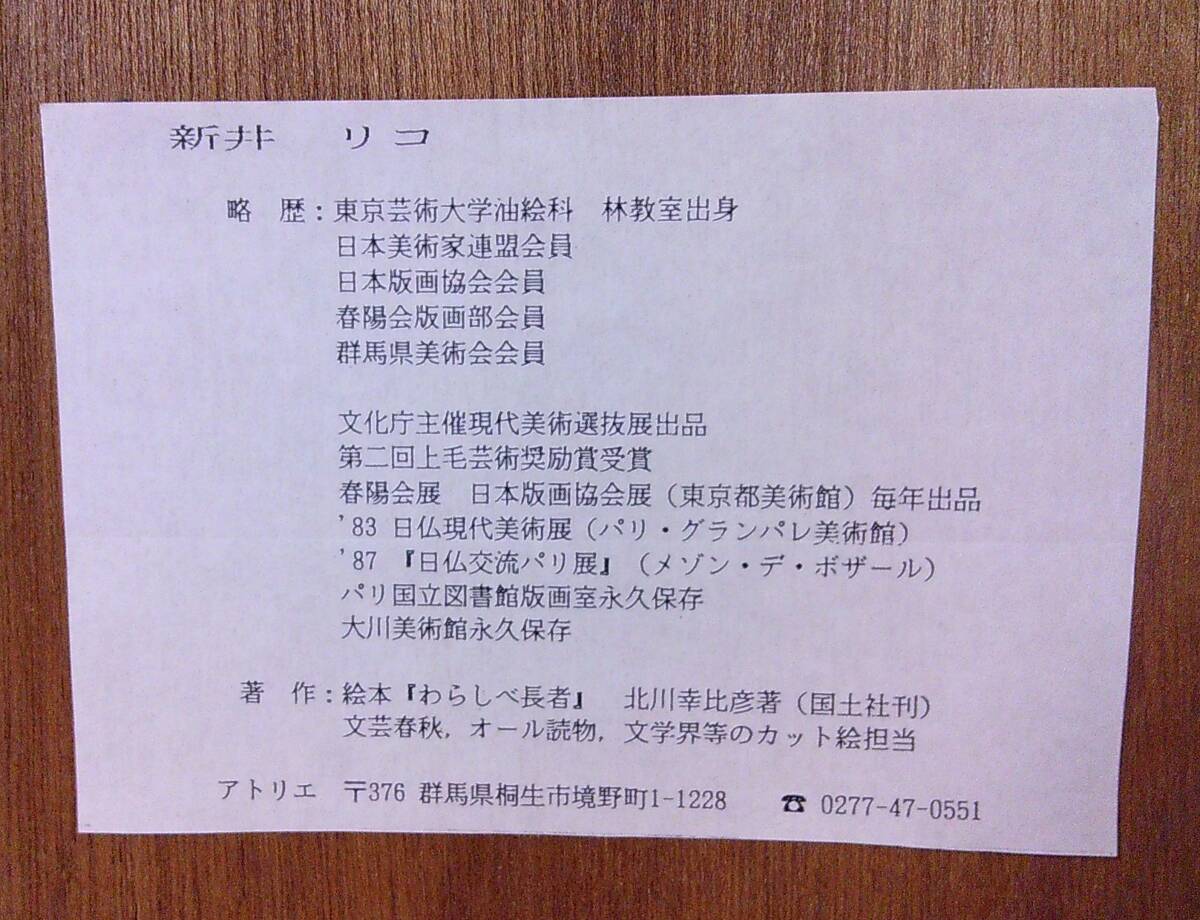 新井　リコ
略　歴：東京芸術大学油絵科　林教室出身
日本美術家連盟会員
日本版画協会会員
春陽会版画部会員
群馬県美術会会員
文化庁主催現代美術選抜展出品
第二回上毛芸術奨励賞受賞
春陽会展　日本版画協会展（東京都美術館）毎年出品
'83 日仏現代美術展（パリ・グランパレ美術館）
'87 『日仏交流パリ展』（メゾン・デ・ボザール）
パリ国立図書館版画室永久保存
大川美術館永久保存
著　作：絵本『わらしべ長者』　北川幸比彦著（国土社刊）
文芸春秋，オール読物，文学界等のカット絵担当
アトリエ　〒376 群馬県桐生市境野町1-1228　☎ 0277-47-0551